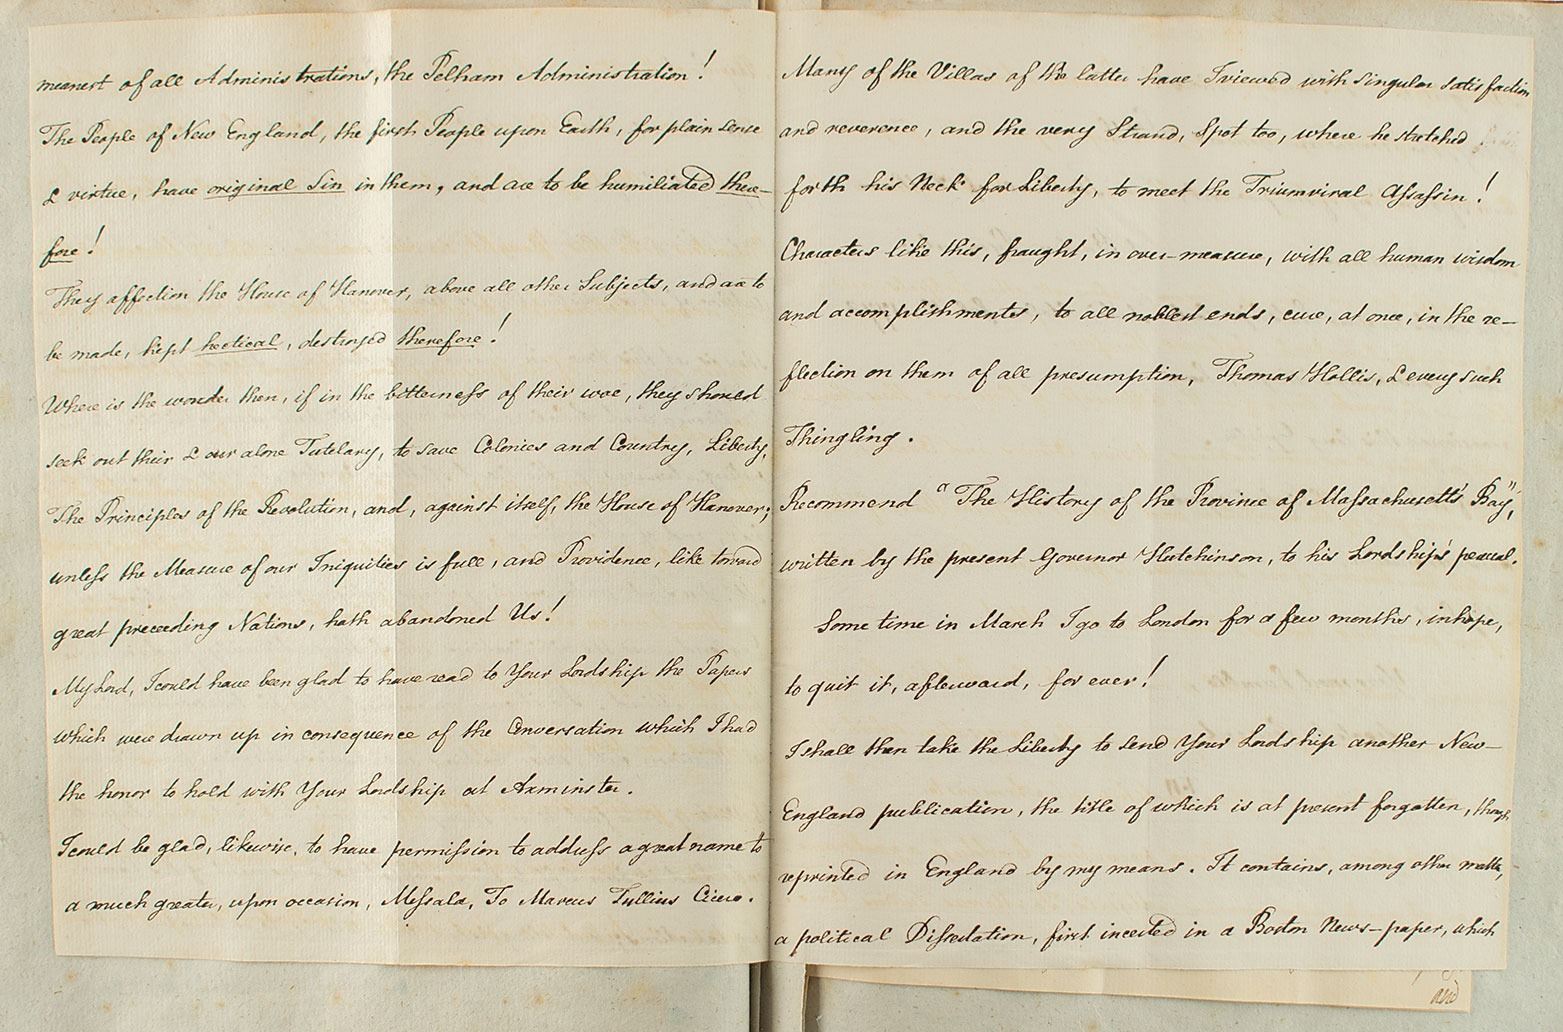 meanest of all Administrations, the Pelham Administration!
The People of New England, the first People upon Earth, for plain sense
& virtue, have original Sin in them, and are to be humiliated there-
fore!
They affection the House of Hanover, above all other Subjects, and are to
be made, kept hectical, destroyed therefore!
Where is the wonder then, if in the bitterness of their woe, they should
seek out their & our alone Tutelary, to save Colonies and Country, Liberty,
The Principles of the Revolution, and, against itself, the House of Hanover;
unless the Measure of our Iniquities is full, and Providence, like toward
great preceeding Nations, hath abandoned Us!
My Lord, I could have been glad to have read to Your Lordship the Papers
which were drawn up in consequence of the Conversation which I had
the honor to hold with Your Lordship at Axminster.
I could be glad, likewise, to have permission to address a great name to
a much greater, upon occasion, Messala, To Marcus Tullius Cicero.
Many of the Villas of the latter have I viewed with singular satisfaction
and reverence, and the very Strand, Spot too, where he stretched
forth his Neck for Liberty, to meet the Triumviral Assassin!
Characters like this, fraught, in over-measure, with all human wisdom
and accomplishments, to all noblest ends, cure, at once, in the re-
flection on them of all presumption, Thomas Hollis, & every such
Thingling.
Recommend "The History of the Province of Massachusetts' Bay",
written by the present Governor Hutchinson, to his Lordship's perusal.
Some time in March I go to London for a few months, in hope,
to quit it, afterward, for ever!
I shall then take the Liberty to send Your Lordship another New-
England publication, the title of which is at present forgotten, though
reprinted in England by my means. It contains, among other matter,
a political Dissertation, first inserted in a Boston News-paper, which
and